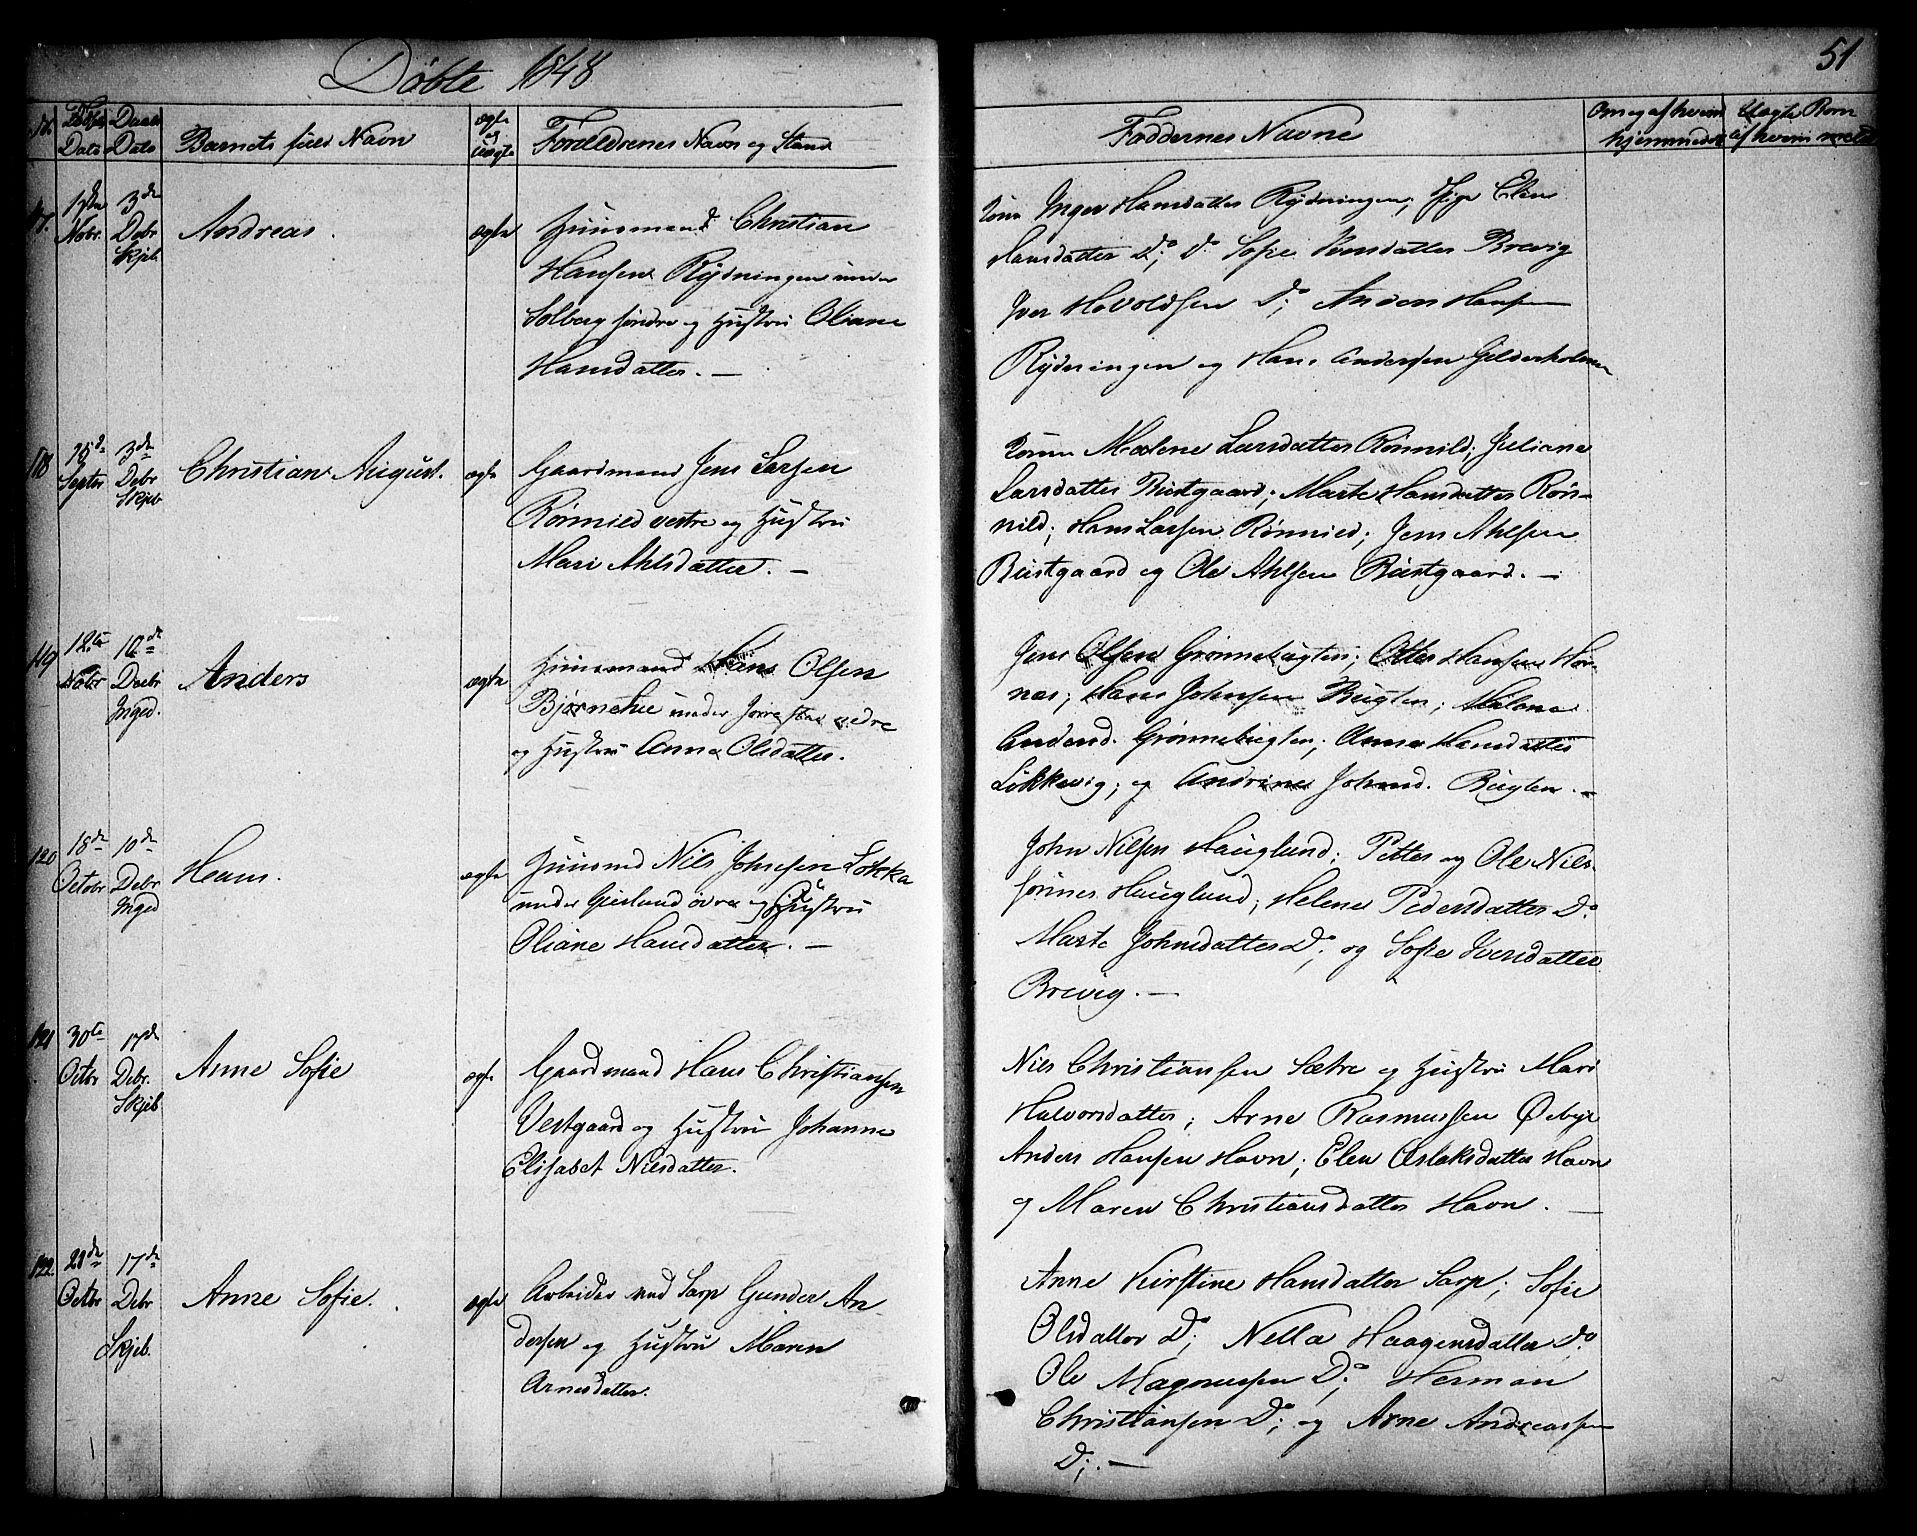 Döbte 1848
51
No. Fødse Daabs
Dato Dato
Barnets fulde Navn
ægte og uægte
Forældrenes Navn og Stand
Faddernes Navne
Om eg af hvem hjemmedøbt
Uægte Børn af hvem meldt
117. 1ste Nobr. 3de Debr Skjeb.
Andreas.
ægte
Huusmand Christian
Hansen Rydningen under
Solberg søndre og Hustru Oliane
Hansdatter. —
Inger Hansdatter Rydningen; Pige Elen
Hansdatter Do; Do Sofie Iversdatter Brevig
Iver Hovoldsen Do; Anders Hansen
Rydningen og Hans Andersen Gelderholmen
118 25de Septbr 3de Debr Skjeb
Christian August.
ægte
Gaardmand Jens Larsen
Rømnild vestre og Hustru
Mari Ahlsdatter. —
Malene Larsdatter Rømnild; Juliane
Larsdatter Bustgaard; Marte Hansdatter Røm-
nild; Hans Larsen Rømnild; Jens Ahlsen
Bustgaard og Ole Ahlsen Bustgaard. —
119 12te Nobr 10de Debr Inged.
Anders
ægte
Huusmand Hans Olsen
Bjørnehie under Jorrestad nedre
og Hustru Anna Olsdatter.
Jens Olsen Grønnebugten; Otter Hansen Hor-
næs; Hans Johnsen Bugten; Malena
Andersd. Grønnebugten; Anna Hansdatter
Løkkevig; og Andrine Johnsd. Bugten. —
120 18de Octobr 10de Debr Inged
Hans.
ægte
Huusmd Nils Johnsen Løkka
under Gueslund øvre og Hustru
Oliane Hansdatter. —
John Nilsen Hauglund; Petter og Ole Nils-
sønner Hauglund; Helene Pedersdatter Do.
Marte Johnsdatter Do; og Sofie Iversdatter
Brevig. —
121 30te Octbr 17de Debr. Skjeb
Anne Sofie
ægte
Gaardmand Hans Christiansen
Vestgaard og Hustru Johanne
Elisabet Nilsdatter.
Nils Christiansen Sætre og Hustru Mari
Halvorsdatter; Arne Rasmussen Øebye
Anders Hansen Havn; Elen Aslaksdatter Havn
og Maren Christiansdatter Havn. —
122. 28de Octbr 17de Debr Skjeb.
Anne Sofie.
ægte
Arbeider ved Sarp Gunder An-
dersen og Hustru Maren
Arnesdatter.
Anne Kirstine Hansdatter Sarp; Sofie
Olsdatter Do; Nella Haagensdatter Do.
Ole Magnussen Do; Herman
Christiansen Do; og Arne Andreassen
Do; —